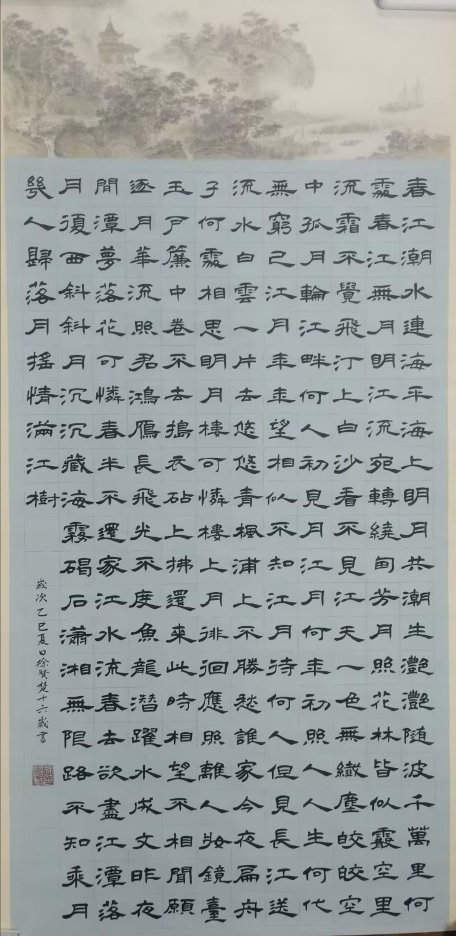 春江潮水連海平海上明月共潮生灧灧随波千萬里何
處春江無月明江流宛轉繞甸芳月照花林皆似霰空里
流霜不覺飛汀上白沙看不見江天一色無纖塵皎皎空
中孤月輪江畔何人初見月江月何年初照人人生何代
無窮已江月年年望相似不知江月待何人但見長江送
流水白雲一片去悠悠青楓浦上不勝愁誰家今夜扁舟
子何處相思明月樓可憐樓上月徘徊應照離人妝鏡臺
玉户簾中卷不去搗衣砧上拂還來此時相望不相聞願
逐月華流照君鴻鴈長飛光不度魚龍潛躍水成文昨夜
間潭夢落花可憐春半不還家江水流春去欲盡江潭落
月復西斜斜月沉沉藏海霧碣石瀟湘無限路不知乘月
幾人歸落月搖情滿江樹
歲次乙巳夏日徐贤楚十六歲書